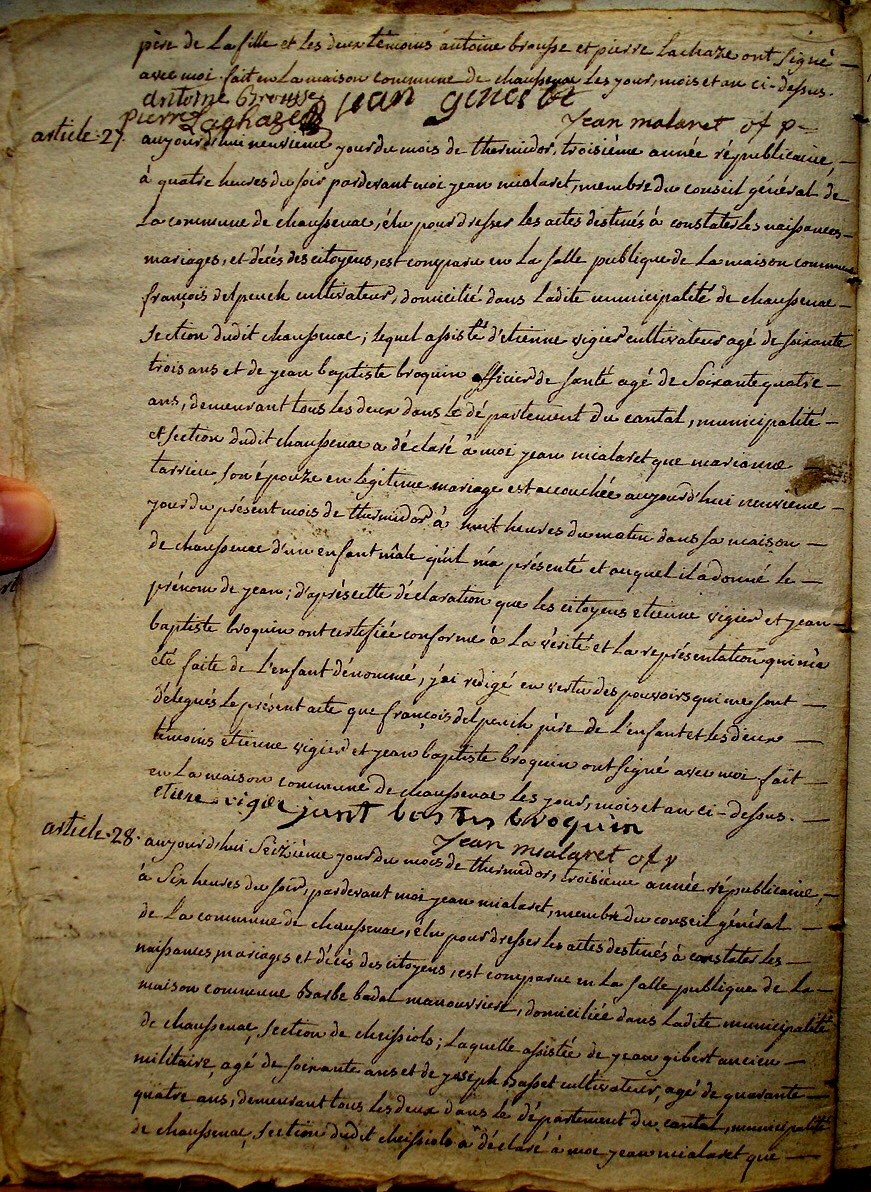 père de la fille et les deux témoins antoine brousse et pierre lachaze ont signé
avec moi. fait en la maison commune de chaussenac les jour, mois et an ci-dessus.
antoine Brousse jean
pierre Lachaze jean malaret of p
article 27. aujourd'hui neuvieme jour du mois de thermidor, troisième année républicaine,
à quatre heures du soir pardevant moi jean mialaret, membre du conseil général de
la commune de chaussenac, élu pour dresser les actes destinés à constater les naissances
mariages, et décés des citoyens, est comparu en la salle publique de la maison commune
françois delpeuch cultivateur, domicilié dans ladite municipalité de chaussenac
section dudit chaussenac ; lequel assisté d'etienne vigier cultivateur agé de soixante
trois ans et de jean baptiste broquin officier de santé agé de soixante quatre
ans, demeurant tous les deux dans le département du cantal, municipalité
et section dudit chaussenac a déclaré à moi jean mialaret que marianne
tarrieu son épouze en légitime mariage est accouchée aujourd'hui neuvième
jour du présent mois de thermidor à huit heures du matin dans sa maison
de chaussenac d'un enfant mâle qu'il m'a présenté et auquel il a donné le
prénom de jean ; d'après cette déclaration que les citoyens etienne vigier et jean
baptiste broquin ont certifiée conforme à la vérité et la représentation qui m'a
été faite de l'enfant dénommé, j'ai redigé en vertu des pouvoirs qui me sont
délegués le présent acte que françois delpeuch père de l'enfant et les deux
témoins etienne vigier et jean baptiste broquin ont signé avec moi fait
en la maison commune de chaussenac les jour, mois et an ci-dessus.
broquin
jean mialaret of p
article 28. aujourd'hui seizième jour du mois de thermidor, troisième année républicaine,
à six heures du soir, pardevant moi jean mialaret, membre du conseil général
de la commune de chaussenac, élu pour dresser les actes destinés à constater les
naissances, mariages et décés des citoyens, est comparue en la salle publique de la
maison commune Barbe badal manouvriere, domiciliée dans ladite municipalité
de chaussenac, section de cheissiols ; laquelle assistée de jean gibert ancien
militaire, agé de soixante ans et de joseph Basset cultivateur, agé de quarante
quatre ans, demeurant tous les deux dans le département du cantal, municipalité
de chaussenac, section dudit cheissiols a déclaré à moi jean mialaret que